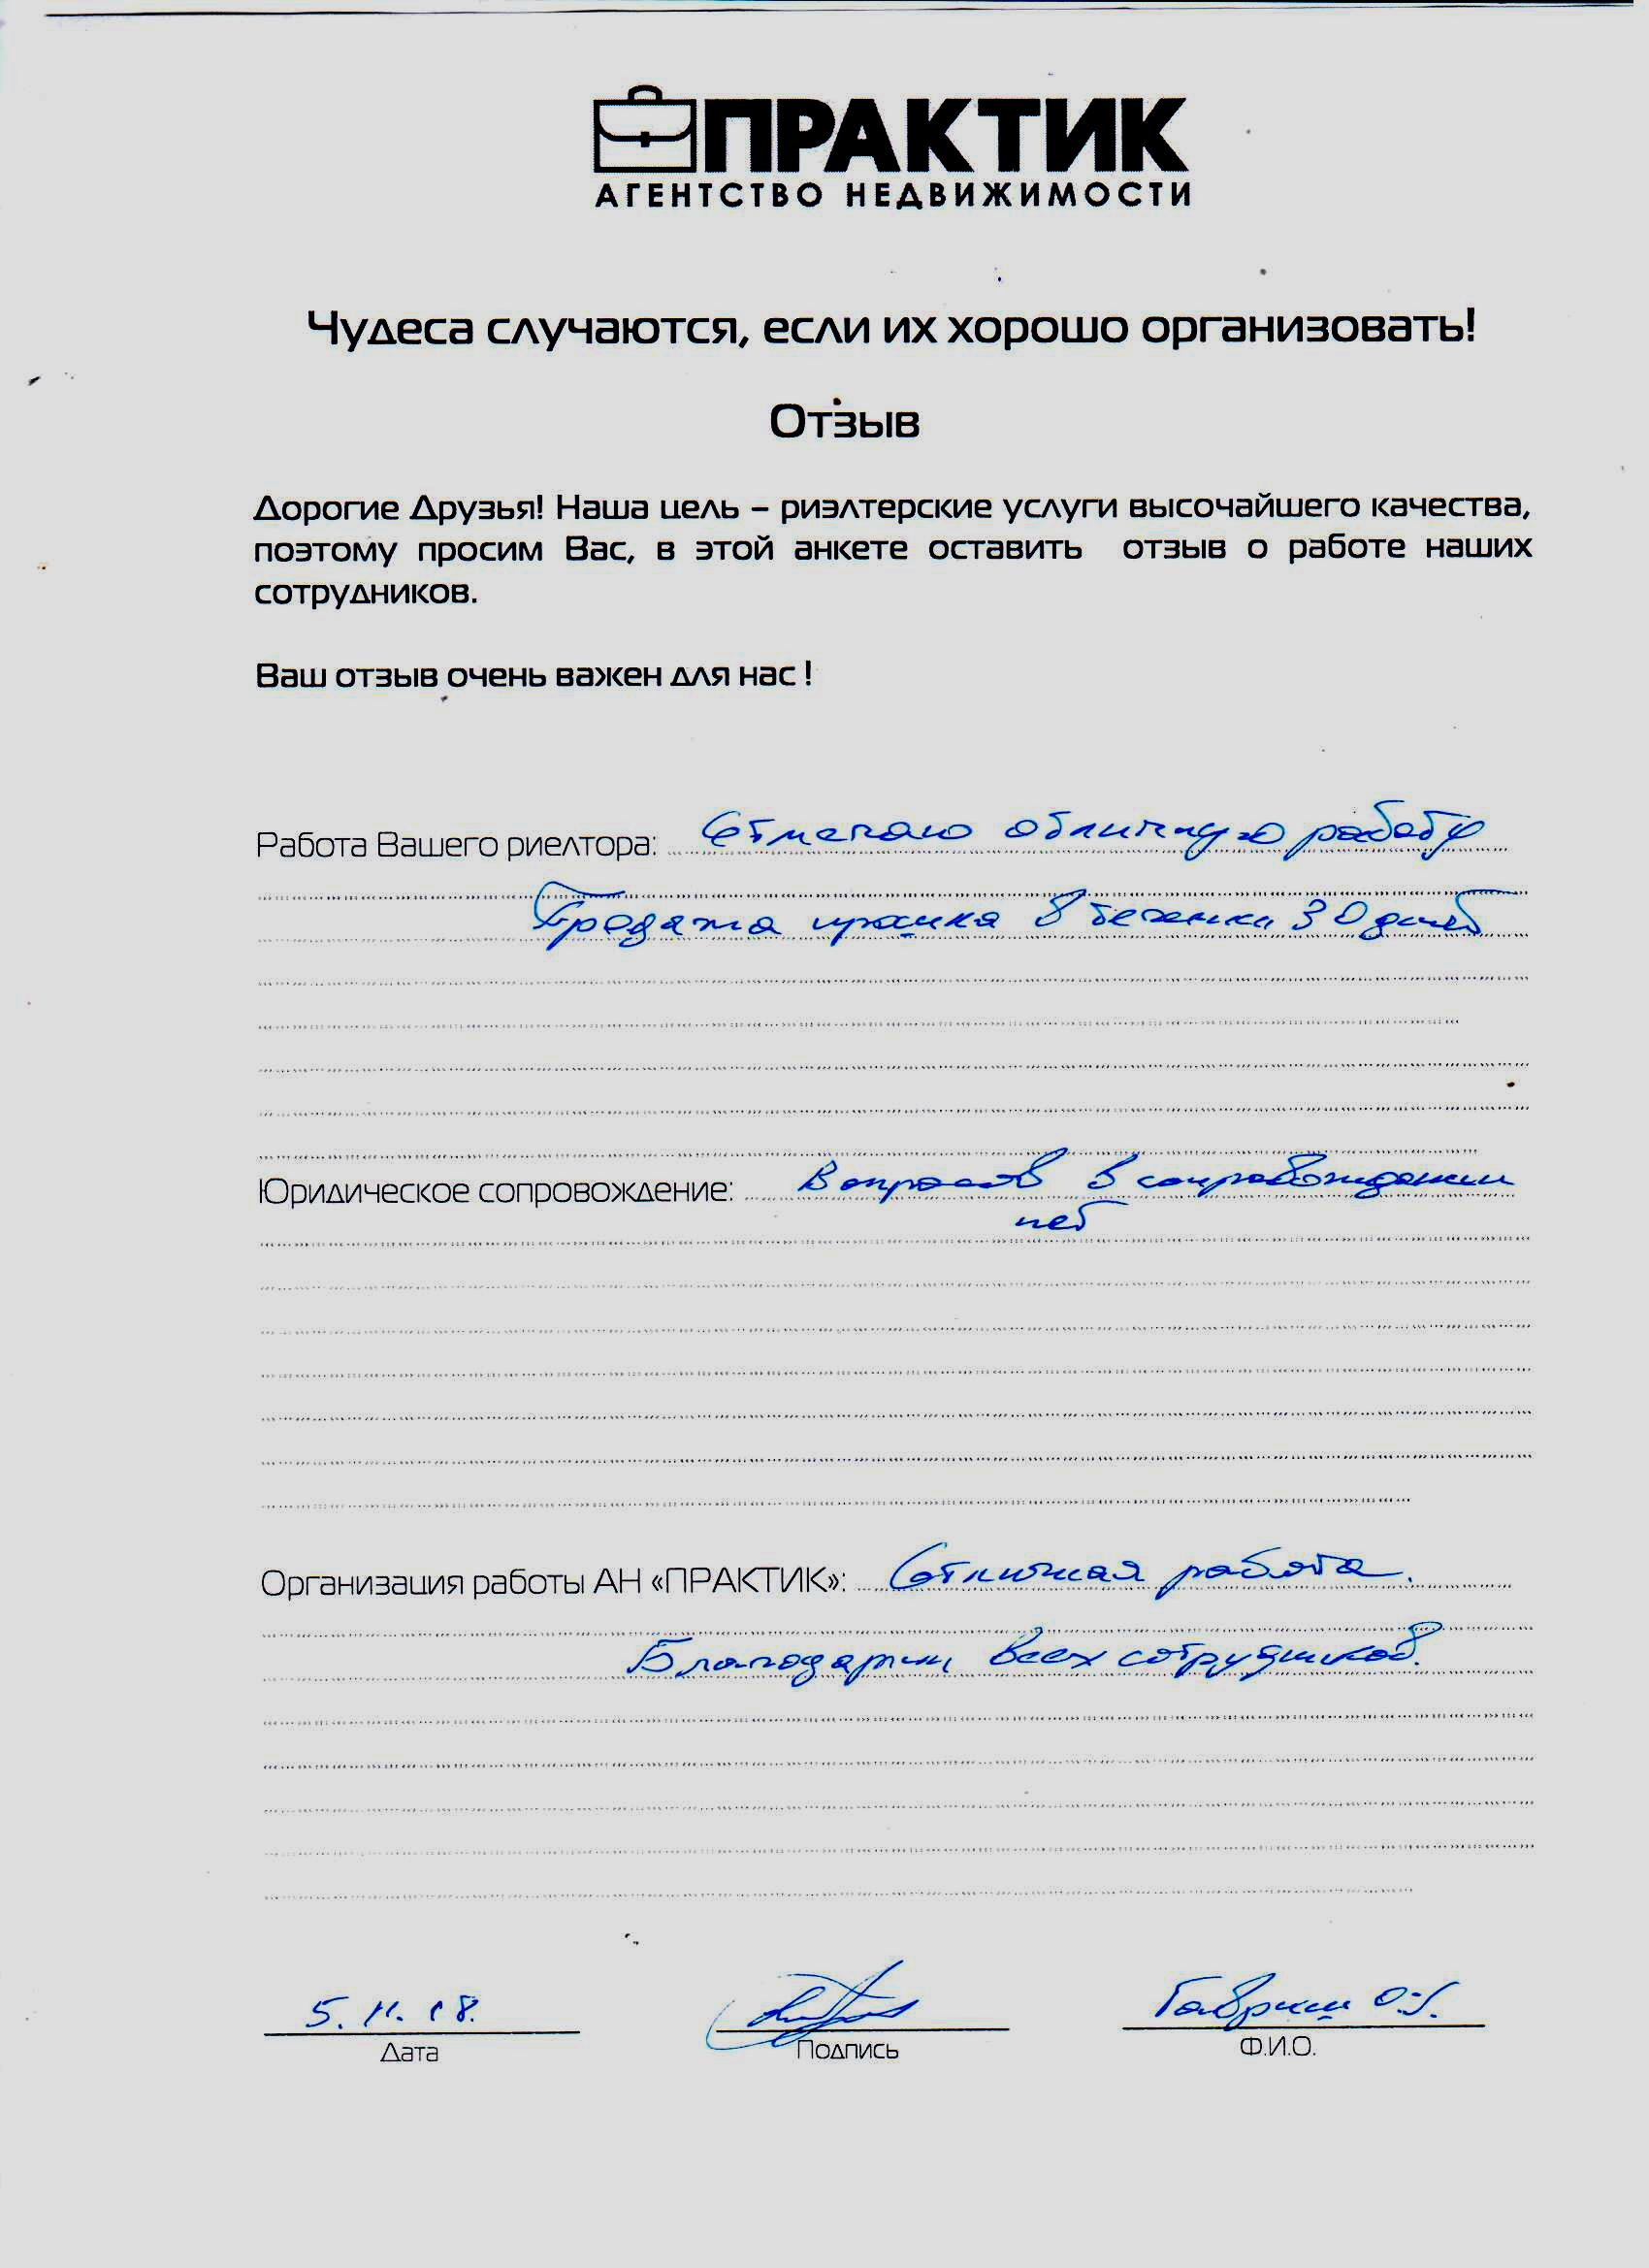 ПРАКТИК
АГЕНТСТВО НЕДВИЖИМОСТИ
Чудеса случаются, если их хорошо организовать!
Отзыв
Дорогие Друзья! Наша цель – риэлтерские услуги высочайшего качества,
поэтому просим Вас, в этой анкете оставить отзыв о работе наших
сотрудников.
Ваш отзыв очень важен для нас !
Работа Вашего риелтора: Отмечаю отличную работу
Продажа в течении 30 дней
Юридическое сопровождение: Вопросов в сопровождении
нет
Организация работы АН «ПРАКТИК»: Отличная работа.
Благодарим всех сотрудников.
5. 11. 18.
Дата
Подпись
Ф.И.О.